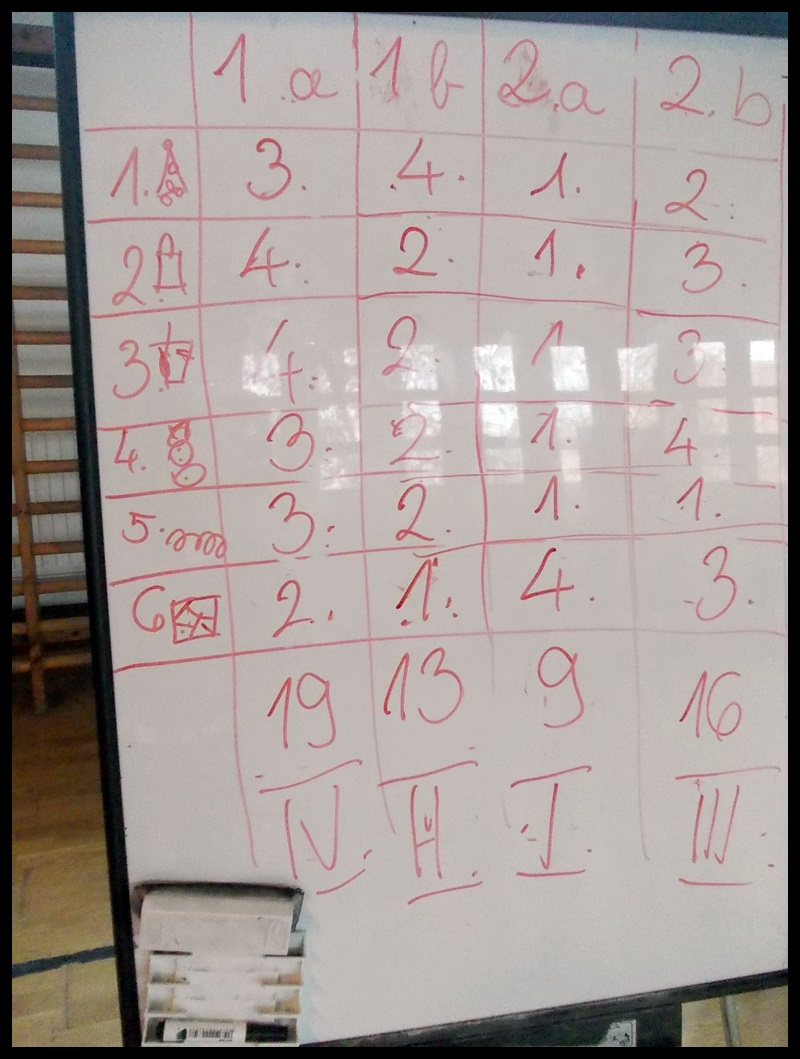 1.a 1b 2.a 2.b
1. 3. 4. 1. 2.
2. 4. 2. 1. 3.
3. 4. 2. 1 3.
4. 3. 2. 1. 4.
5. 3. 2. 1. 1.
6 2. 1. 4. 3.
19 13 9 16
IV. II. I. III.